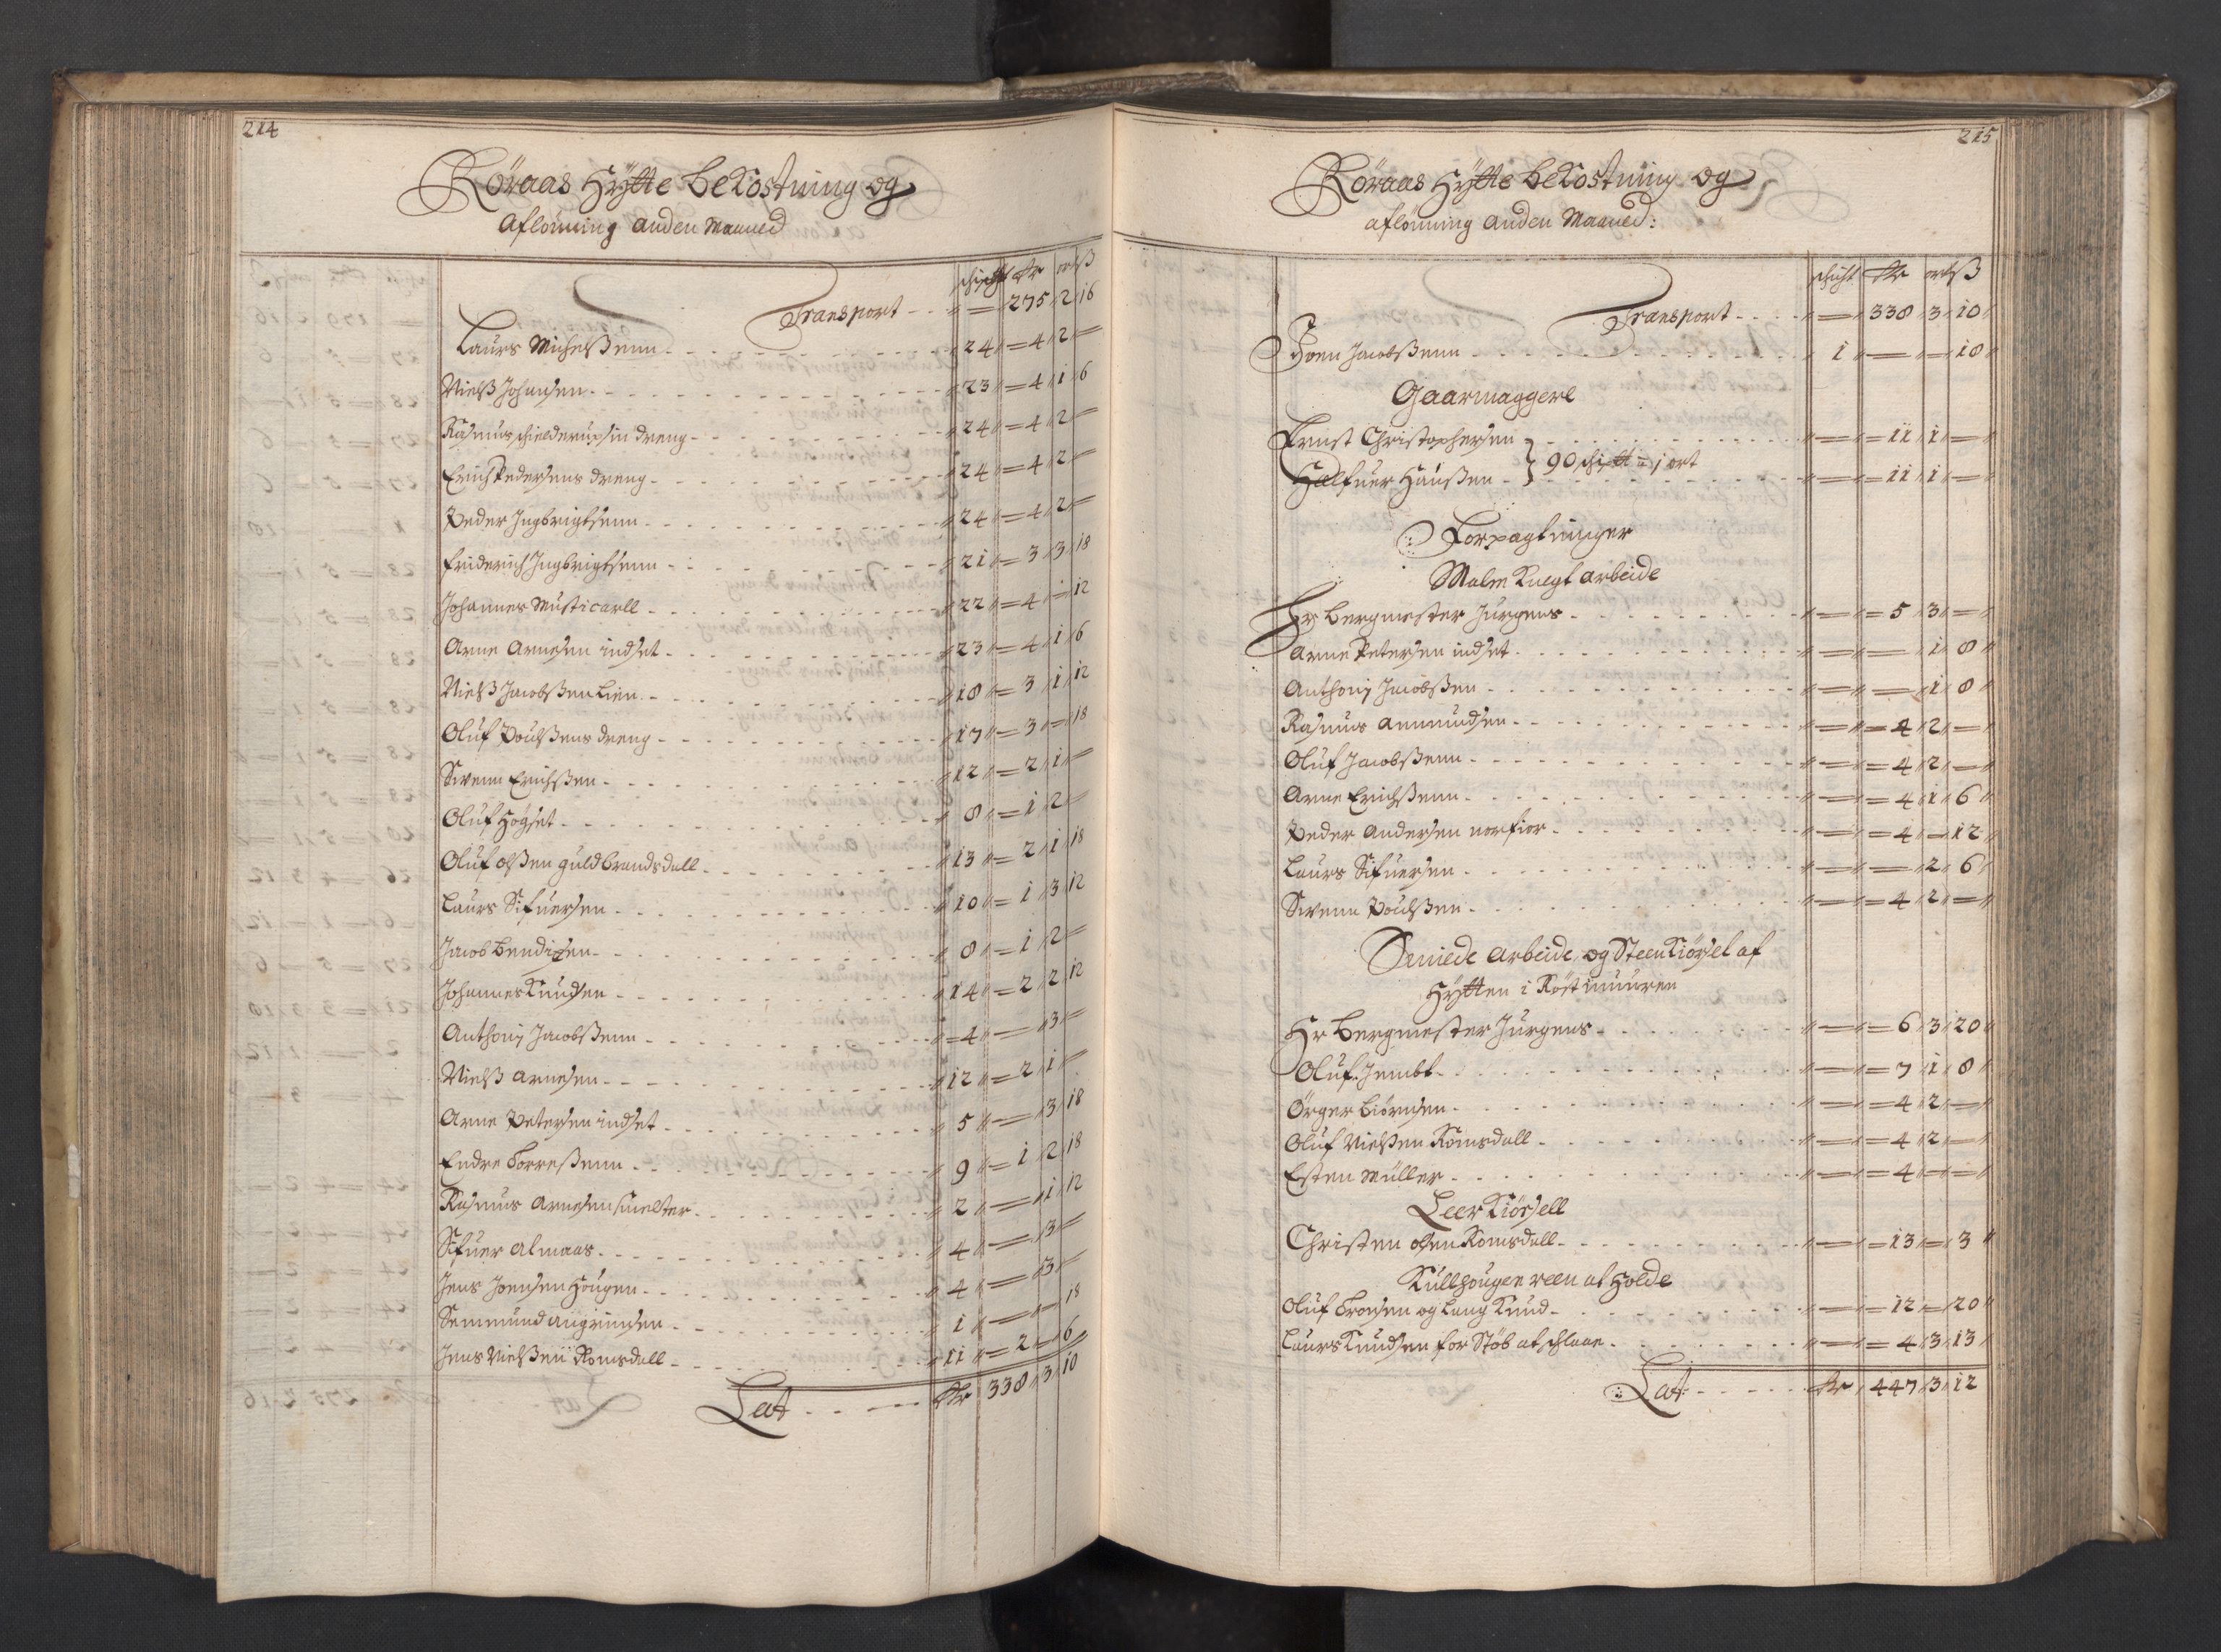 214
Röraas Hÿtte bekostning og
Aflönning anden Maaned
schicht Rdr ort ß
Transport - - 〃 — 275 2 16
Laurs Michelßenn - 24 4 2 —
Nielß Johansen - 23 4 1 6
Rasmus schielderups in dreng - 24 4 2 —
Erich Pedersens dreng - 24 4 2 —
Peder Ingbrigtsenn - 24 4 2 —
Friderich Ingbrigtsenn - 21 3 3 18
Johannes Musticarll - 22 4 — 12
Arne Arnesen indset - 23 4 1 6
Nielß Jacobßen Lien - 18 3 1 12
Oluf Poulßens dreng - 17 3 — 18
Swenn Erichßen - 12 2 1 —
Oluf Högset - 8 1 2 —
Oluf olßen guldbrandsdall - 13 2 1 18
Laurs Sifuersen - 10 1 3 12
Jacob Bendixen - 8 1 2 —
Johannes Knudsen - 14 2 2 12
Anthonj Jacobßenn - 4 — 3 —
Nielß Arnesen - 12 2 1 —
Arne Petersen indset - 5 — 3 18
Endre Torreßenn - 9 1 2 18
Rasmus Arnesen smelter - 2 — 1 12
Sifuer Almaas - 4 — 3 —
Jens Joensen Hougen - 4 — 3 —
Semmund - 1 — — 18
Jens Nielßen Romsdall - 11 2 — 6
Lat - - - Rdr 338 3 10
215
Röraas Hÿtte bekostning og
aflönning anden Maaned:
schicht Rdr ort ß
Transport - - - 〃 — 338 3 10
Joen Jacobßenn - 1 — — 18
Gaarmaggere
Ernst Christophersen - — 11 1 —
} 90 schicht a j ort
Halfuer Hanßen - — 11 1 —
Forpagtninger
Malm Knegt arbeide
Hr Bergmester Jürgens - — 5 3 —
Arne Petersen indset - — — 1 8
Anthonj Jacobßen - — — 1 8
Rasmus Ammundsen - — 4 2 —
Oluf Jacobßenn - — 4 2 —
Arne Erichßenn - — 4 1 6
Peder Andersen norfior - — 4 — 12
Laurs Sifuersen - — — 2 6
Swenn Poulßen - — 4 2 —
Smiede Arbeide og Steen Kiörsel af
Hÿtten i Röstmuuren
Hr Bergmester Jürgens - — 6 3 20
Oluf Jembt - — 7 1 8
Örger Biörnsen - — 4 2 —
Oluf Nielßen Romsdall - — 4 2 —
Esten Müller - — 4 — —
Leer Kiörsell
Christen olsen Romsdall - — 13 — 3
Kullhougen reen at Holde
Oluf Tronsen og Lang Knud - — 12 — 20
Laurs Knudsen for Stöb at schlaae - — 4 3 13
Lat - - - Rdr 447 3 12